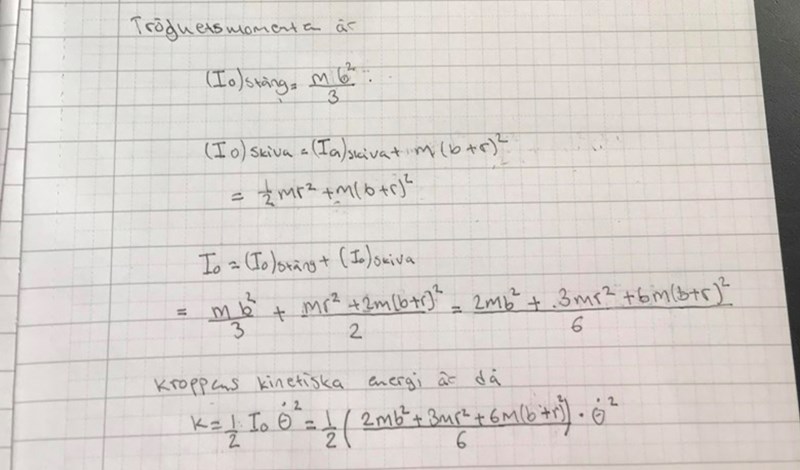 Tröghetsmomenten är
(I₀)stång = mb²/3
(I₀)skiva = (Ia)skiva + m(b+r)²
= 1/2 mr² + m(b+r)²
I₀ = (I₀)stång + (I₀)skiva
= mb²/3 + (mr² + 2m(b+r)²)/2 = (2mb² + 3mr² + 6m(b+r)²)/6
Kroppens kinetiska energi är då
K = 1/2 I₀ θ̇² = 1/2 ((2mb² + 3mr² + 6m(b+r)²)/6) · θ̇²